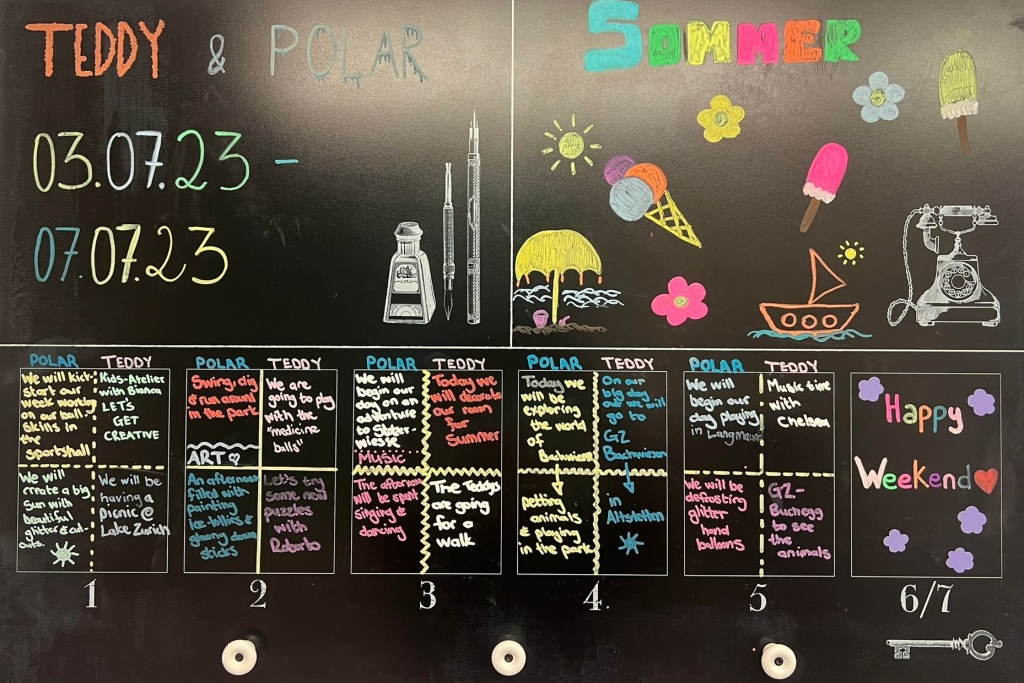 TEDDY & POLAR
03.07.23 -
07.07.23
SOMMER
POLAR TEDDY
We will kick-
start our
week working
on our ball-
skills in
the
sportshall
Kids-Atelier
with Bianca
LET'S
GET
CREATIVE
We will
create a big
sun with
beautiful
glitter & cut-
outs.
We will be
having a
picnic @
Lake Zurich
1
POLAR TEDDY
Swing, dig
& run around
in the park
ART
We are
going to play
with the
"medicine
balls"
An afternoon
filled with
painting
ice-lollies &
glueing down
sticks
Let's try
some new
puzzles
with
Roberto
2
POLAR TEDDY
We will
begin our
day on an
adventure
to
wiese
MUSIC
Today we
will decorate
our room
for
Summer
The afternoon
will be spent
singing &
dancing
The Teddys
are going
for a
walk
3
POLAR TEDDY
Today we
will be
exploring
the world
of
Bachwiesen
On our
big day
out we will
go to
GZ
Bachwiesen
petting
animals
& playing
in the park
in
Altstetten
4
POLAR TEDDY
We will
begin our
day playing
in Langmauer
Music time
with
Chelsea
We will be
defrosting
glitter
hand
balloons
GZ-
Buchegg
to see
the
animals
5
Happy
Weekend
6/7